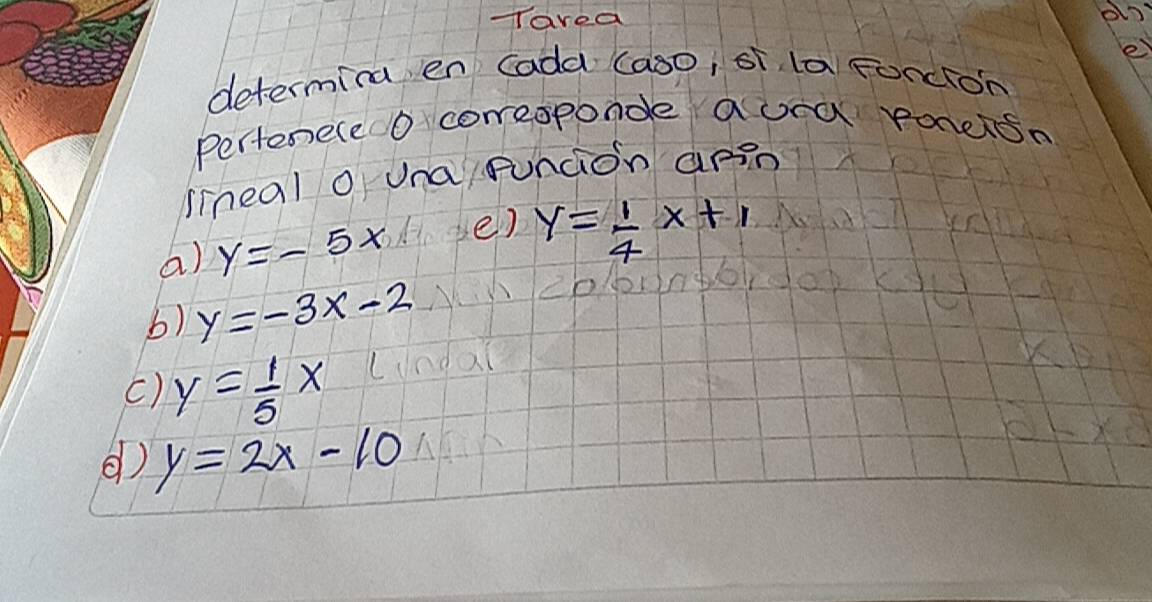 Tarea
determina en cada caso, si la función
pertenece o corresponde a una función
lineal o una función afín
a) y = - 5x e) y = 1/4 x + 1
b) y = -3x - 2
c) y = 1/5 x Lineal
d) y = 2x - 10
d)
e)